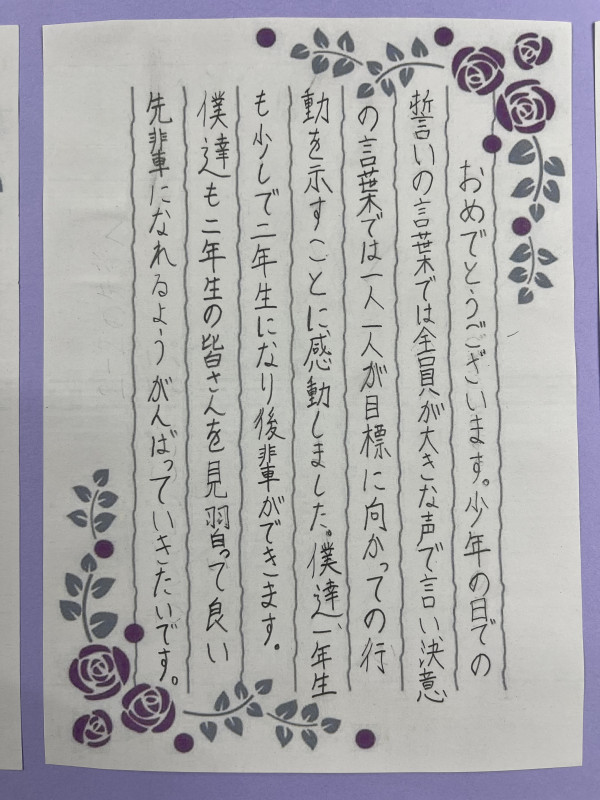 おめでとうございます。少年の日での
誓いの言葉では全員が大きな声で言い決意
の言葉では一人一人が目標に向かっての行
動を示すことに感動しました。僕達、一年生
も少しで二年生になり後輩ができます。
僕達も二年生の皆さんを見習って良い
先輩になれるようがんばっていきたいです。